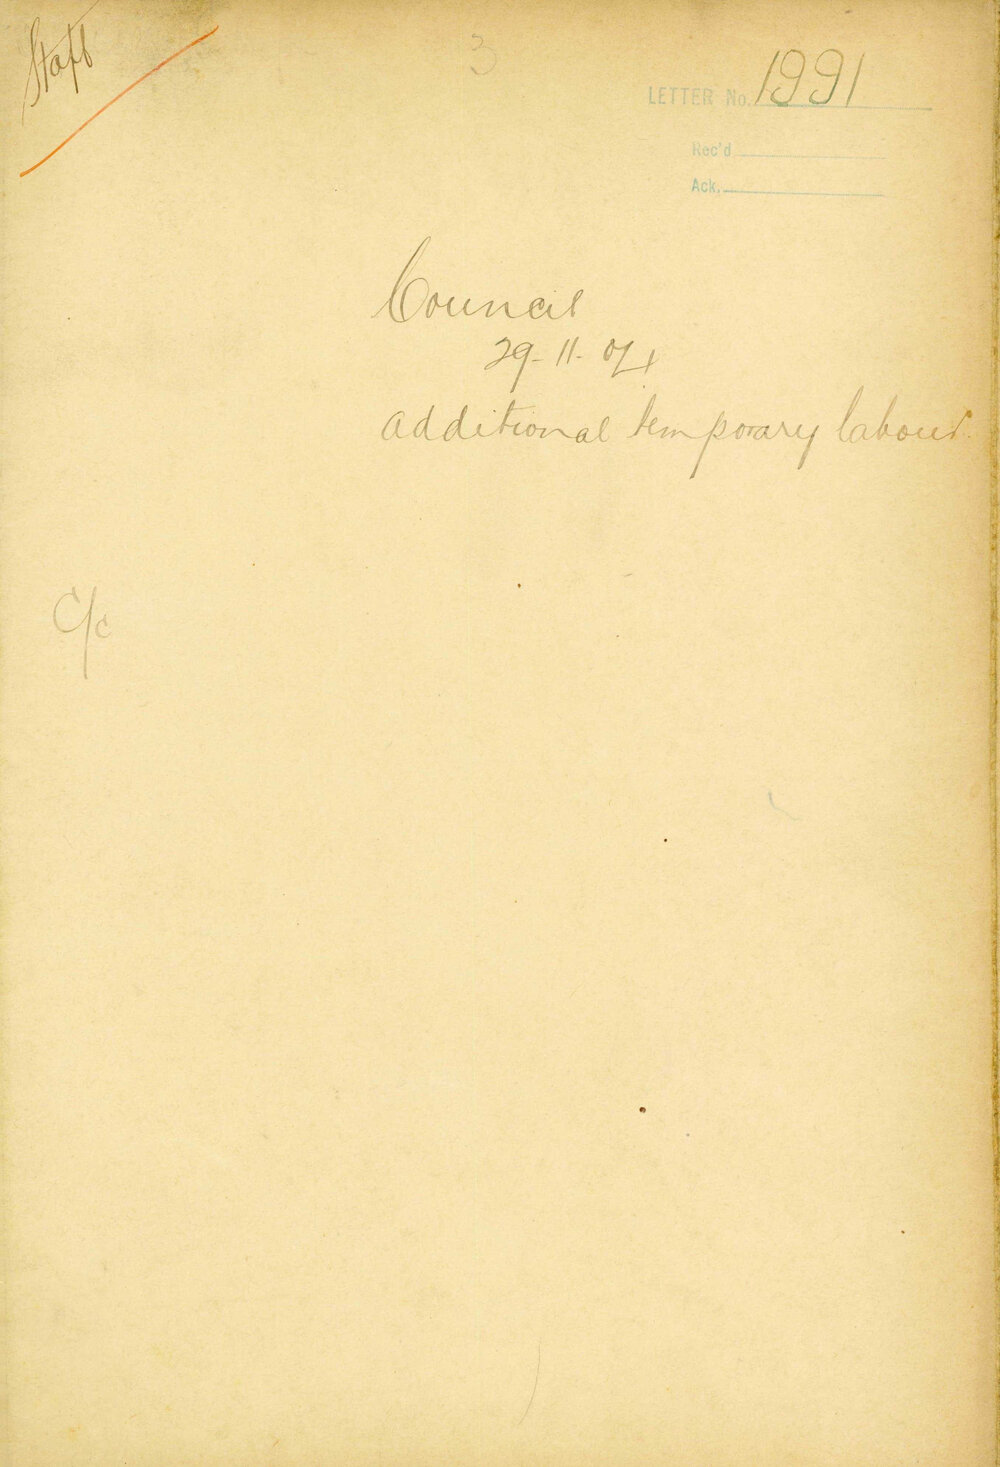 Staff
3
LETTER No. 1991
Rec'd
Ack.
Council
29-11-04
additional temporary labour
C/c